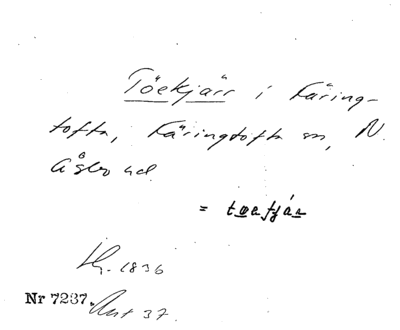 Töekjärr i Färing-
tofta, Färingtofta sn, N.
Åsbo hd.
=
Hg. 1836
Nr 7237. Ant 37.